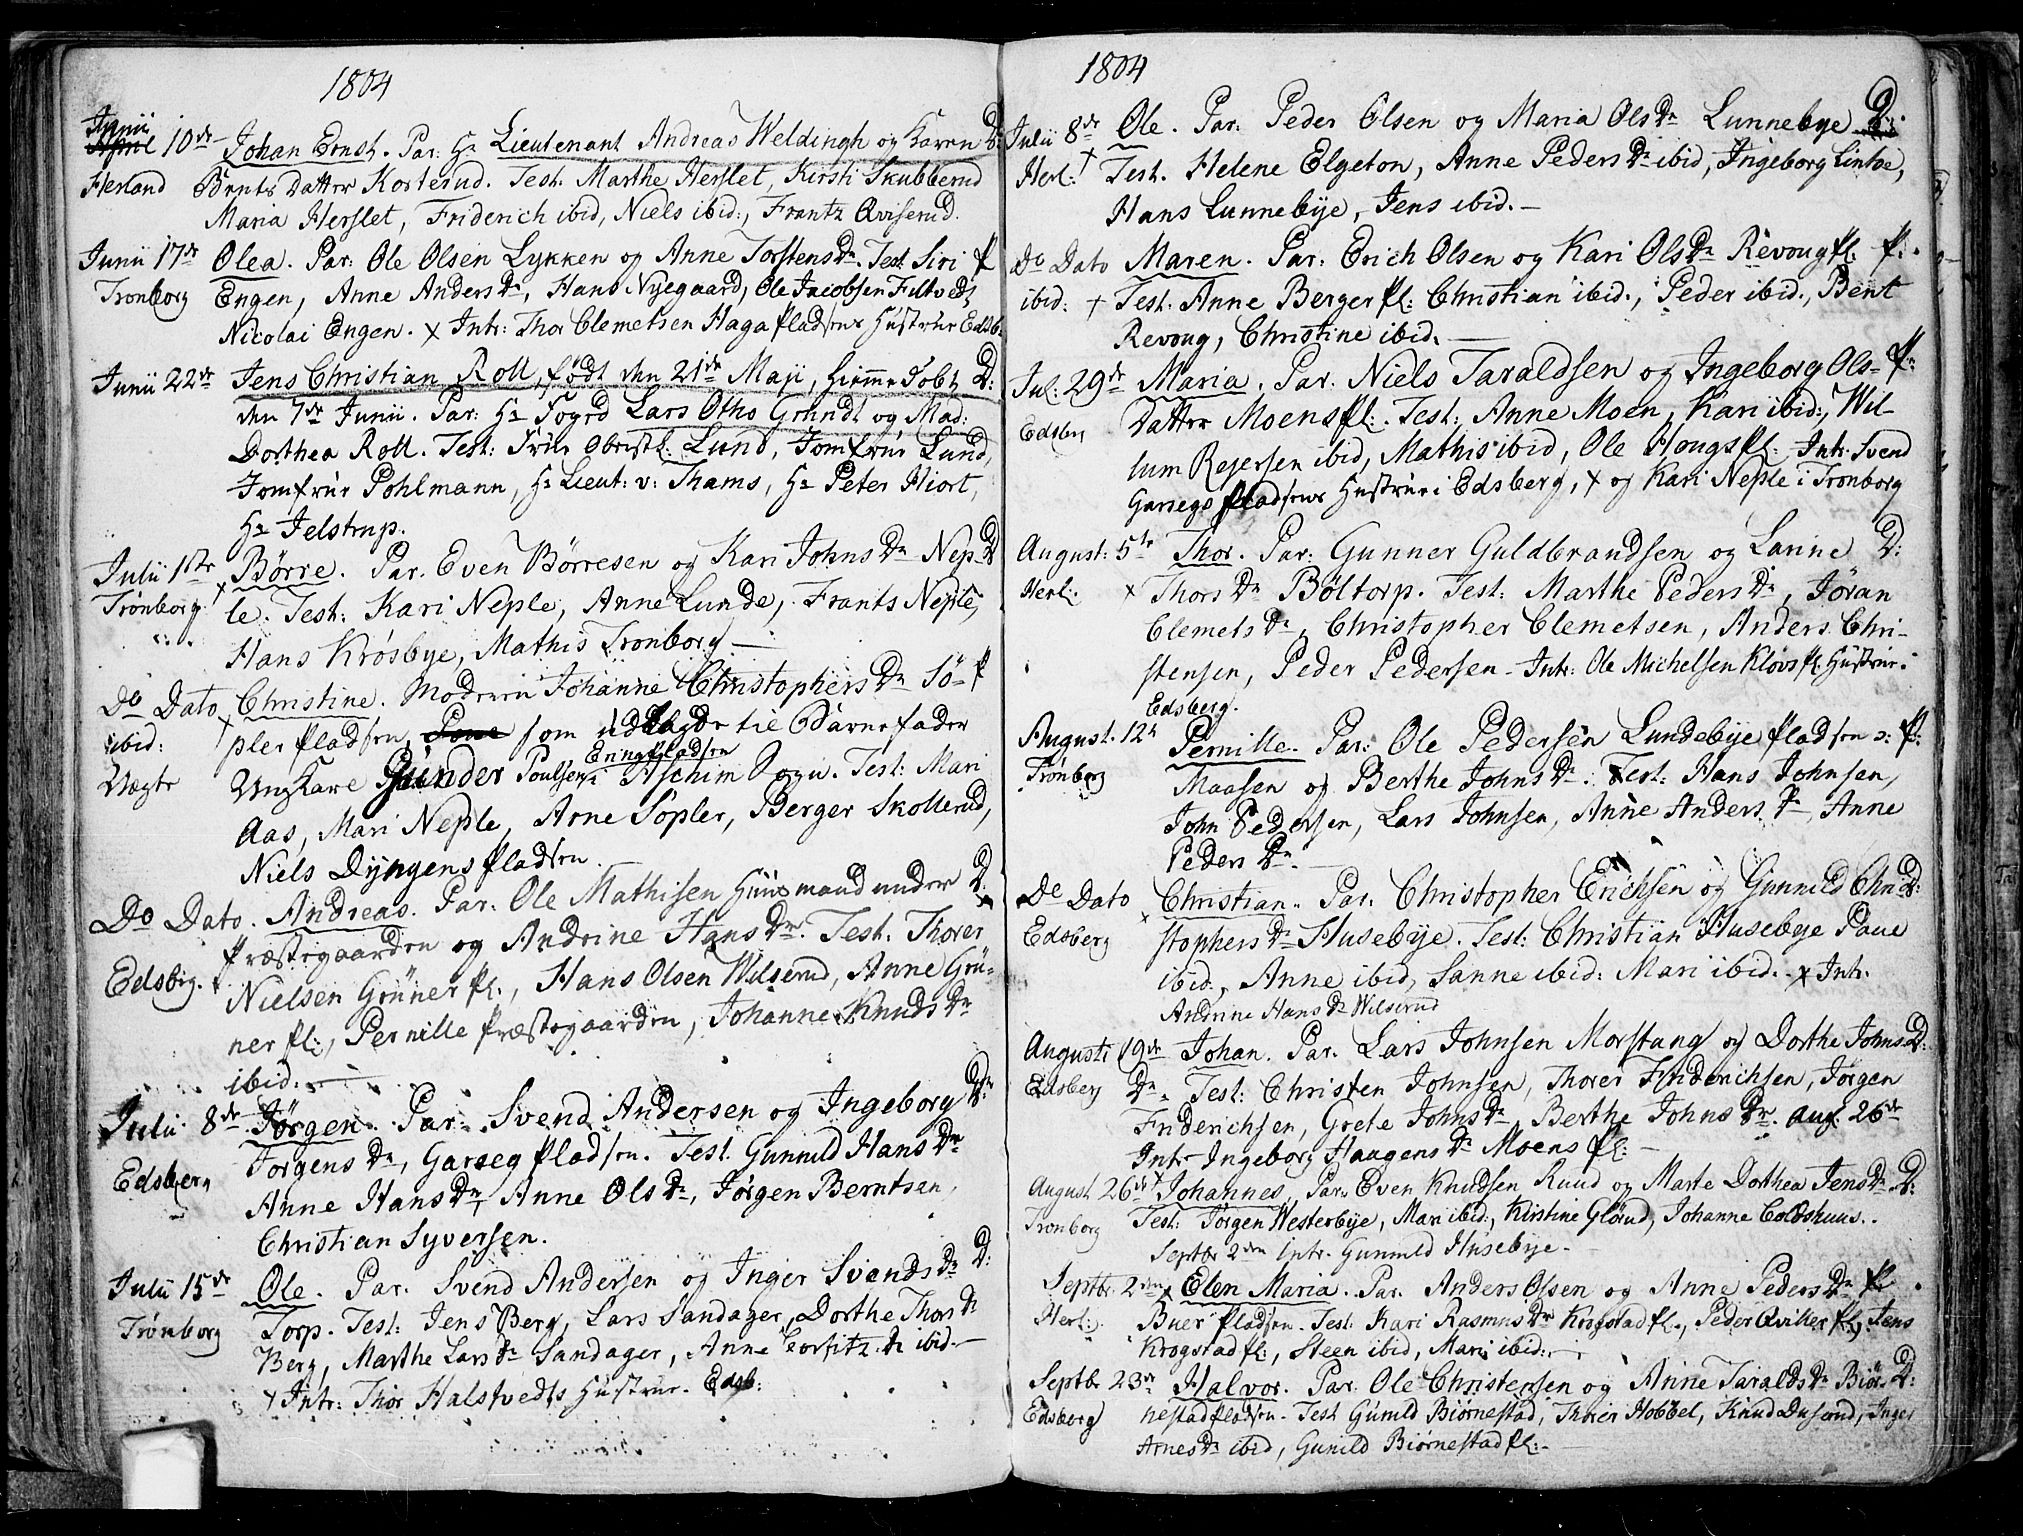 1804
Junii
10de Johan Ernst. Par: Hr Lieutenant Andreas Weldingh og Karen D:
Herland Bents Datter Kosterud. Test. Marthe Herslet, Kirsti Skubberud
Maria Herslet, Friderich ibid, Niels ibid:, Frantz Qviserud.
Junii 17de Olea. Par: Ole Olsen Lykken og Anne Torstens Dr. Test: Siri P
Tronborg Engen, Anne Anders Dr, Hans Nyegaard, Ole Jacobsen Filtvedt
Nicolai Engen. x Intr: Thor Clemetsen Haga pladsens Hustrue Edsb.
Junii 22de Jens Christian Roll, født den 21de Maji, hiemme døbt D:
den 7de Junii. Par: Hr Foged Lars Otho Grundt og Mad:
Dorthea Roll. Test: Frue Obristl: Lund, Jomfrue Lund,
Jomfrue Pohlmann, Hr Lieut: v: Thams, Hr Peter Hiort,
Hr Jelstrup.
Julii 1ste Børre. Par. Even Børresen og Kari Johns Dr Nep- D
Trønborg x le. Test: Kari Neple, Anne Lunde, Frants Neple,
Hans Krosbye, Mathis Tronborg.
Do Dato Christine. Moderen Johanne Christophers Dr Sö- P
ibid: x pler pladsen, som udlagde til Barnefader
Uægte Ungkarl Gunder Poulsen i Eringpladsen Aschim Sogn. Test: Mari
Aas, Mari Neple, Arne Sopler, Berger Skollerud,
Niels Dyngens pladsen.
Do Dato. Andreas. Par: Ole Mathisen Huusmand under D:
Edsbrg. Præstegaarden og Andrine Hans Dr. Test. Thorer
Nielsen Gruner pl:, Hans Olsen Wilserud, Anne Gru-
ner pl:, Pernille Præstegaarden, Johanne Knuds Dr
ibid:
Julii 8de Jørgen. Par: Svend Andersen og Ingeborg D:
Edsberg Jorgens Dr, Garseg pladsen. Test. Gunnild Hans Dr
Anne Hans Dr, Anne Ols Dr, Jørgen Berntsen,
Christian Syversen.
Julii 15de Ole. Par. Svend Andersen og Inger Svends Dr D:
Trønborg Torp. Test: Jens Berg, Lars Sandager, Dorthe Thors Dr
Berg, Marthe Lars Dr Sandager, Anne Corfitz Dr ibid.
x Intr: Thor Halstvedts Hustrue. Edsb:
1804
Julii 8de Ole. Par: Peder Olsen og Maria Ols Dr Lunnebye D:
Herl: x Test. Helene Elgeton, Anne Peders Dr ibid, Ingeborg Lintoe,
Hans Lunnebye, Jens ibid.
Do Dato Maren. Par: Erich Olsen og Kari Ols Dr Revoug pl: P:
ibid: x Test: Anne Berger pl: Christian ibid., Peder ibid., Bent
Revoug, Christine ibid.
Jul: 29de Maria. Par. Niels Taraldsen og Ingeborg Ols- P:
Edsbrg Datter Moens pl:. Test: Anne Moen, Kari ibid:, Wil-
lum Rejersen ibid, Mathis ibid, Ole Hougs pl: Intr: Svend
Garsegs pladsens Hustrue i Edsberg, x og Kari Neple i Tronborg
August: 5te Thor. Par: Gunner Guldbrandsen og Lanine D:
Herl: x Thors Dr Böltorp. Test: Marthe Peders Dr, Jöran
Clemets Dr, Christopher Clemetsen, Anders Chri-
stensen, Peder Pedersen. Intr: Ole Michelsen Klovs pl: Hustrue.
Edsberg.
August. 12te Pernille. Par: Ole Pedersen Lundebye pladsen P:
Trønberg Maasen og Berthe Johns Dr. Test: Hans Johnsen,
John Pedersen, Lars Johnsen, Anne Anders Dr, Anne
Peders Dr.
Do Dato Christian. Par: Christopher Erichsen og Gunnild Chri D:
Edsberg x stophers Dr Husebye. Test: Christian Husebye Paul
ibid., Anne ibid, Sanne ibid: Mari ibid. x Intr.
Andrine Hans Dr Wilserud
Augusti 19de Johan. Par. Lars Johnsen Morstang og Dorthe Johns D:
Edsberg Dr. Test: Christen Johnsen, Thorer Friderichsen, Jørgen
Friderichsen, Grete Johns Dr Berthe Johns Dr. Aug. 26de
Intr Ingeborg Haagens Dr Moens pl:
August 26de x Johannes. Par: Even Knudsen Ruud og Marte Dorthea Jens Dr D:
Tronborg Test: Jørgen Westerbye, Mari ibid:, Kirstine Glørud, Johanne Coldshuus.
Septbr 2den Intr. Gunnild Husebye.
Septbr 2den x Elen Maria. Par. Anders Olsen og Anne Peders Dr P
Herl: Buer pladsen. Test: Kari Rasmus Dr Krogstad pl., Peder Qviller pl, Jens
Krogstad pl:, Steen ibid, Mari ibid:
Septbr 23de Halvor. Par: Ole Christensen og Anne Taralds Dr Biør- D:
Edsberg nestad pladsen. Test Gunild Biørnestad, Thorer Hobbel, Knud Duserud, Inger
Arnes Dr ibid, Gunild Biørnestad pl: